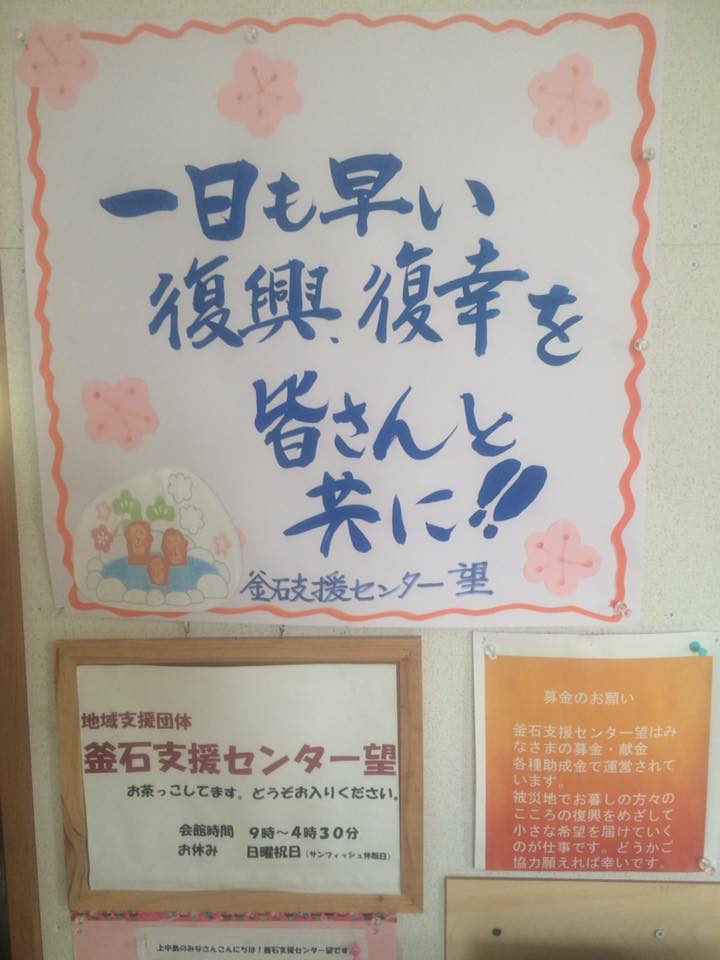 一日も早い
復興、復幸を
皆さんと
共に!!
釜石支援センター望
地域支援団体
釜石支援センター望
お茶っこしてます。どうぞお入りください。
会館時間 9時〜4時30分
お休み 日曜祝日(サンフィッシュ休館日)
募金のお願い
釜石支援センター望はみ
なさまの募金・献金
各種助成金で運営されて
います。
被災地でお暮しの方々の
こころの復興をめざして
小さな希望を届けていく
のが仕事です。どうかご
協力願えれば幸いです。
上中島のみなさんこんにちは!釜石支援センター望です